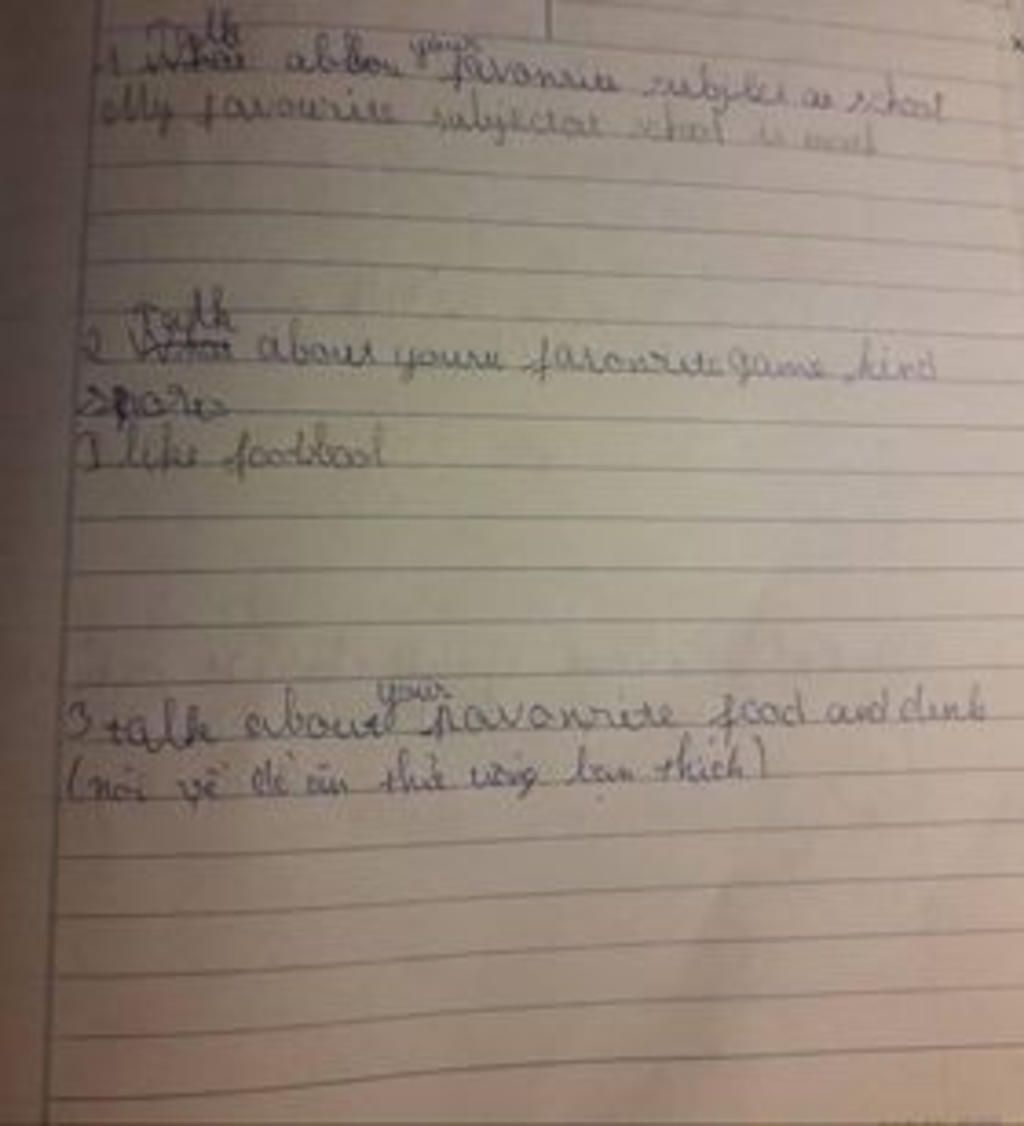 Talk
your
1 What abbou favonrite subject at school
My favourite subject at school is
Talk
2 What about youre favonrite game kind
sports
I like football
your
3 talk about favonrite food and dink
(nói về đồ ăn thứ uống bạn thích)